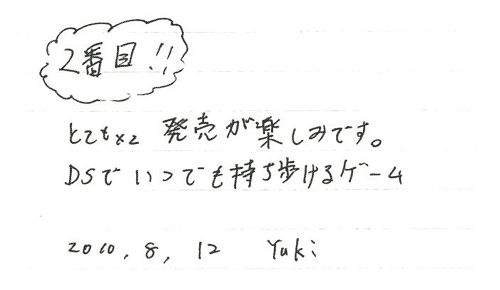 2番目!!
とても×2 発売が楽しみです。
DSでいつでも持ち歩けるゲーム
2010, 8, 12 Yuki